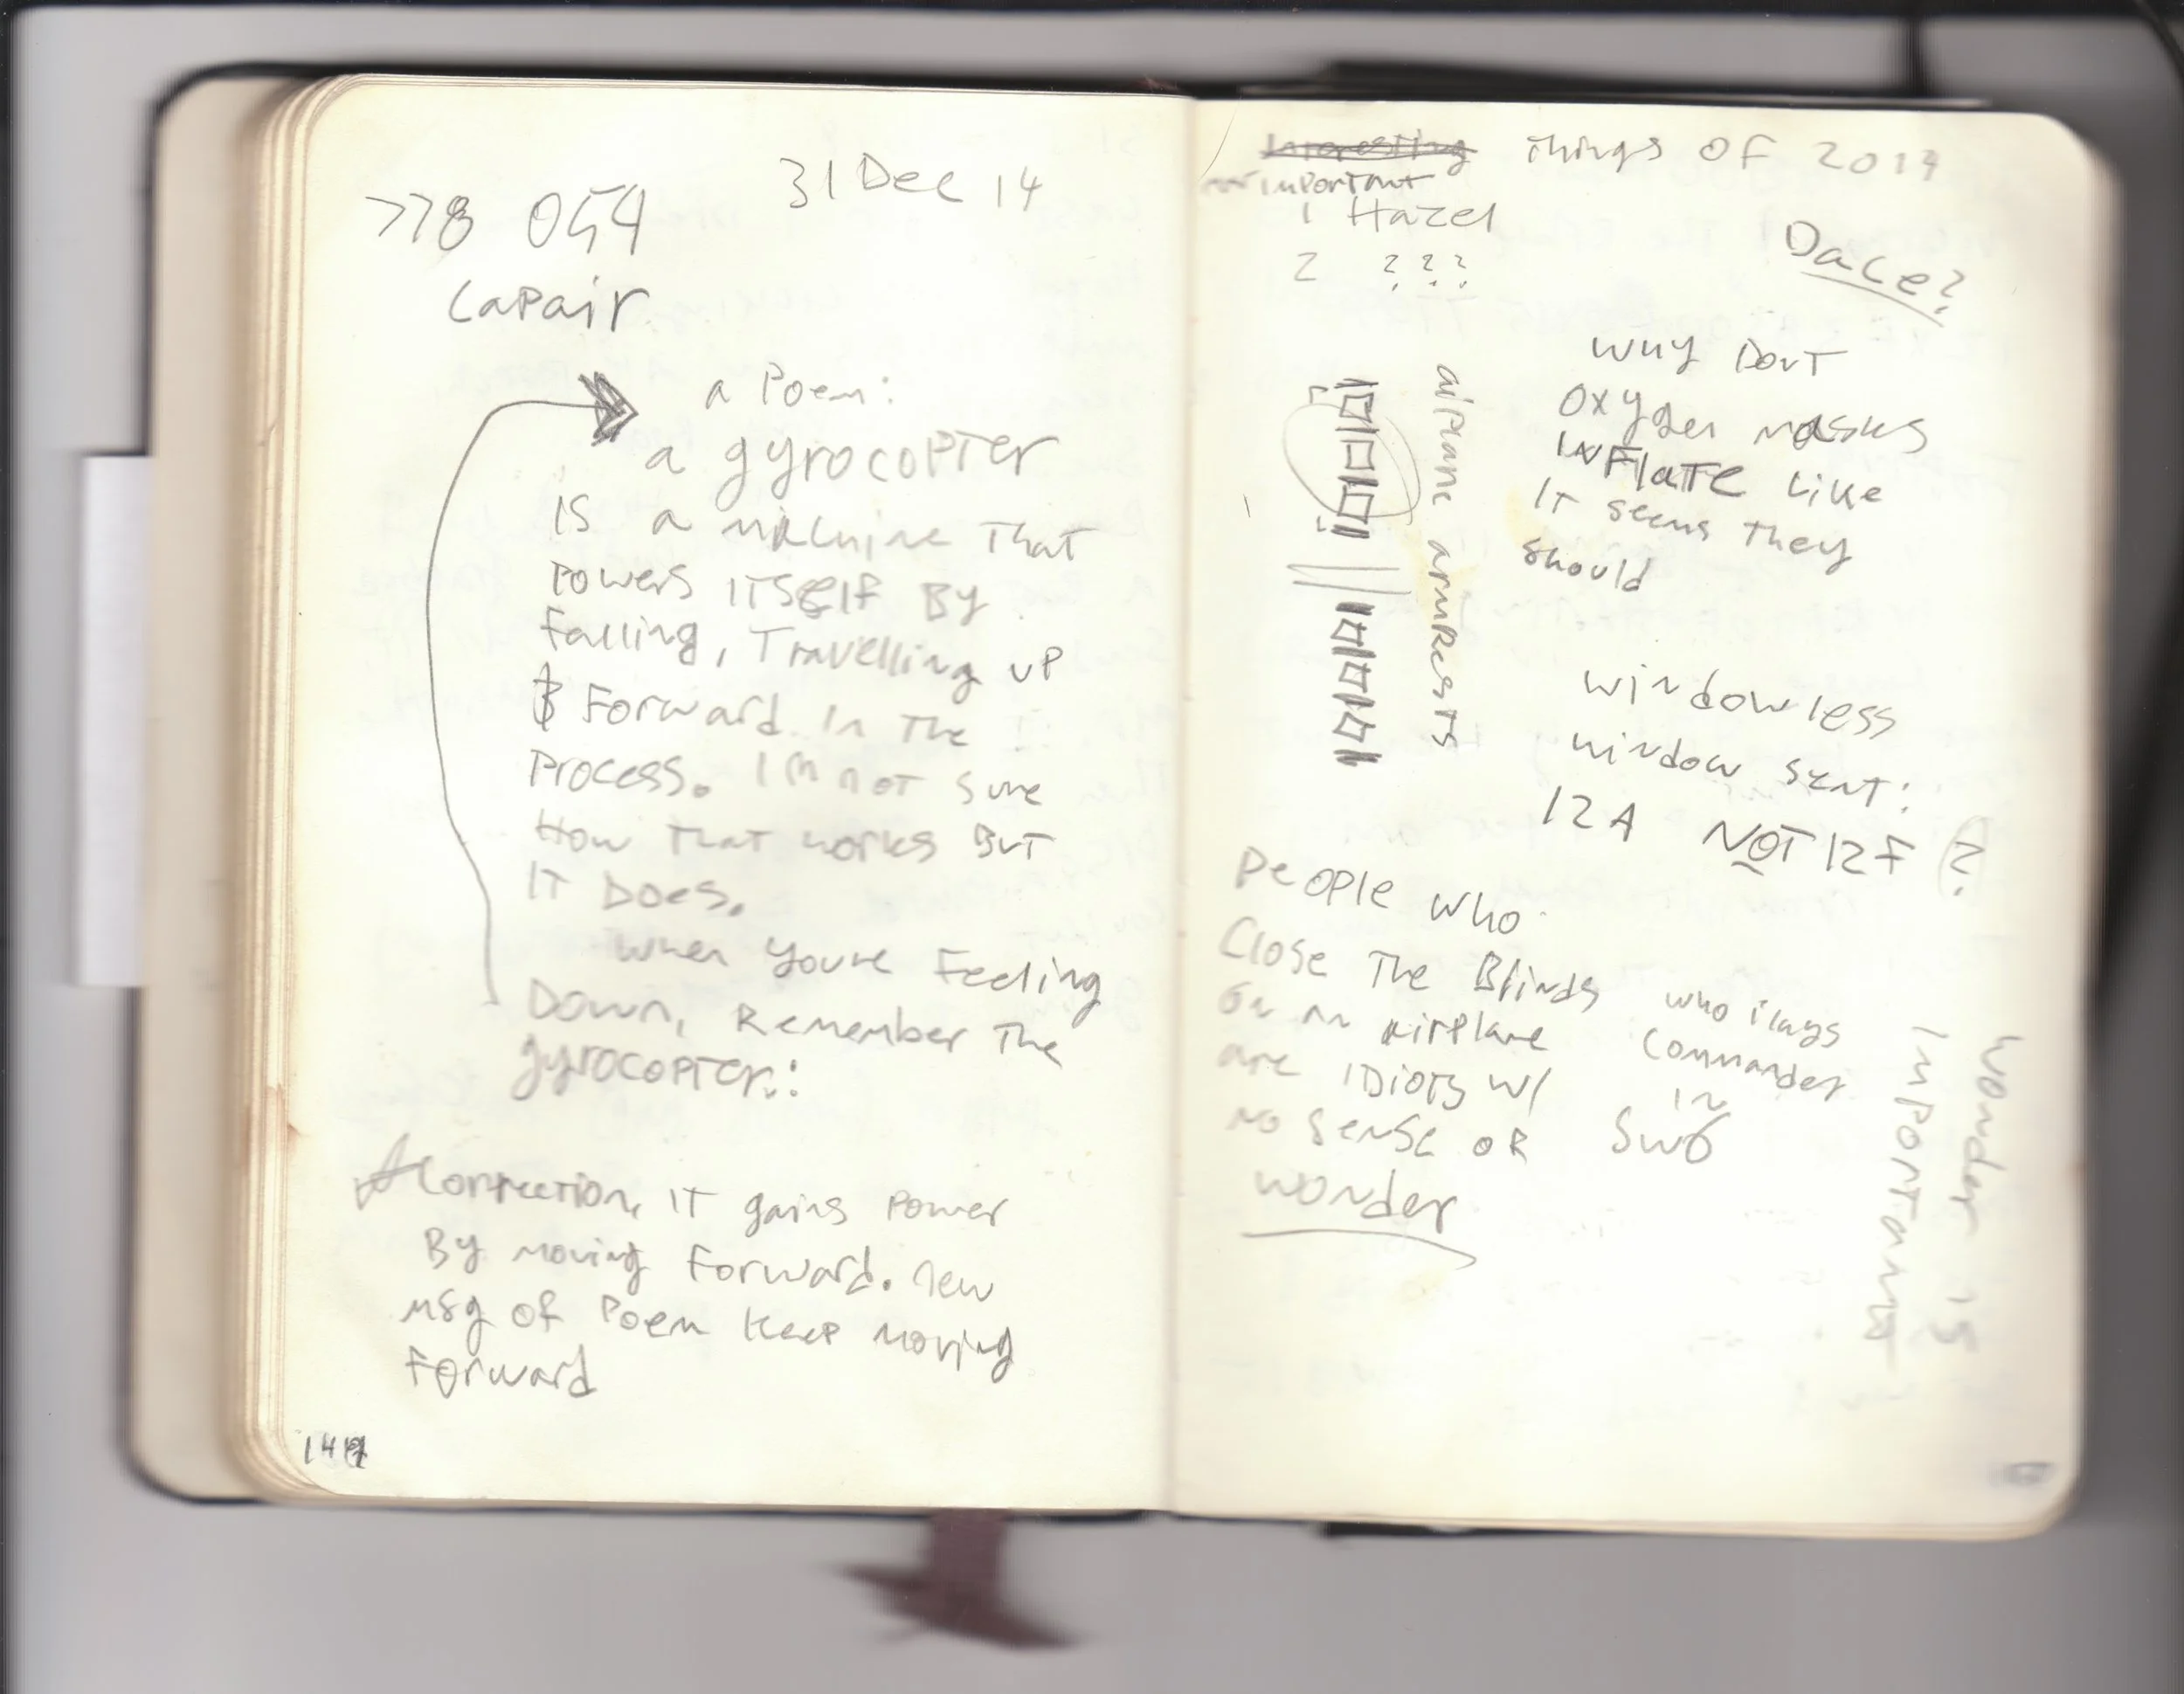 31 Dec 14
778 054
Lapair
a Poem:
a gyrocopTer
IS a machine That
Powers ITSelf By
Falling, Travelling UP
& Forward In The
Process. I'm not sure
How That works But
IT Does.
When You're Feeling
Down, Remember The
gyrocopTer.:
Correction, IT gains Power
By moving Forward. New
msg of Poem Keep moving
Forward
Interesting Things OF 2014
important
1 Hazel
2 ???
Dace?
airplane armrests
Why Don't
Oxygen masks
INFlaTe Like
It seems They
should
windowless
window seat:
12A NOT 12F
People who
Close The Blinds
on an airplane
are IDioTs w/
no sense OR
wonder
who Plays
Commander
in
SW6
wonder is
Important